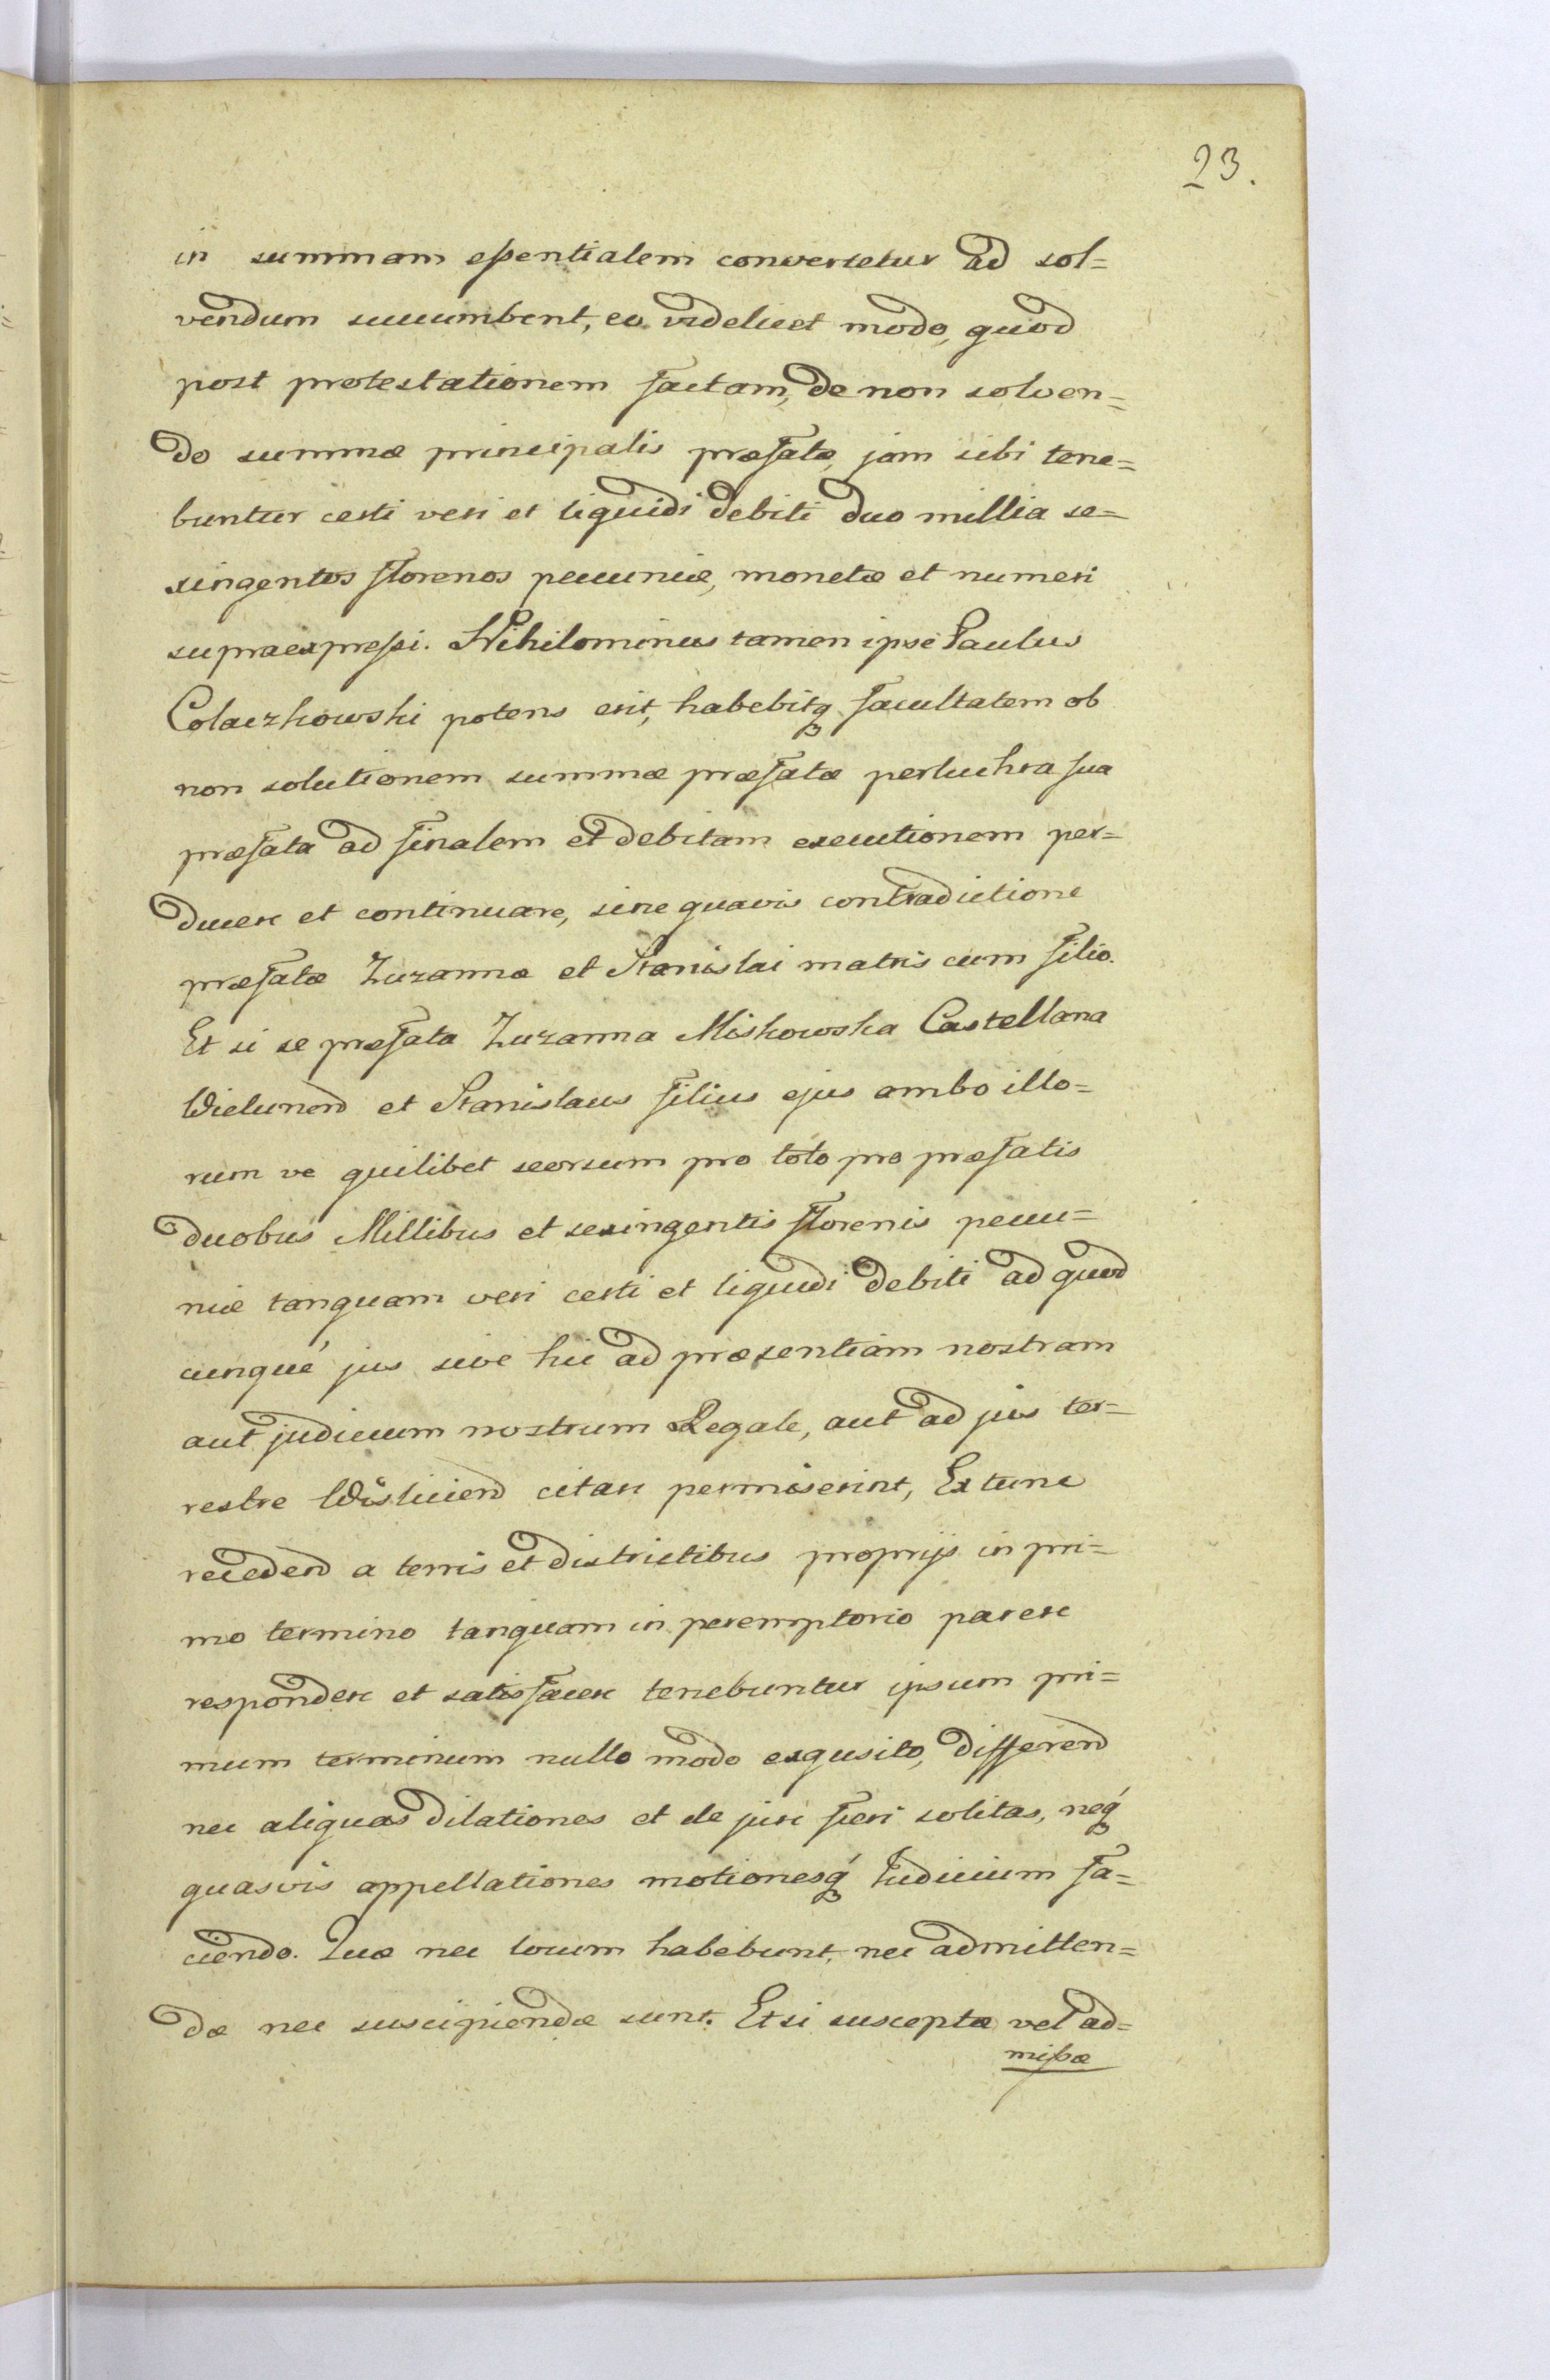 23.
in summam essentialem converteretur ad sol=
vendum succumbent, eo videlicet modo, quod
post protestationem factam, de non solven=
do summæ principalis præfatæ, jam sibi tene=
buntur certi veri et liquidi debiti duo millia se=
xingentos florenos pecuniæ, monetæ et numeri
supraexpressi. Nihilominus tamen ipse Paulus
Colaczkowski potens erit, habebitq facultatem ob
non solutionem summæ præfatæ perluchra sua
præfata ad finalem et debitam executionem per=
ducere et continuare, sine quavis contradictione
præfatæ Zuzannæ et Stanislai matris cum filio.
Et si se præfata Zuzanna Miskowska Castellana
Wielunen et Stanislaus filius ejus ambo illo=
rum ve quilibet seorsum pro toto pro præfatis
duobus Millibus et sexingentis florenis pecu=
niæ tanquam veri certi et liquidi debiti ad quod
cunqué jus sive hic ad præsentiam nostram
aut judicium nostrum Regale, aut ad jus ter=
restre Wislicien citari permiserint, Extunc
receden a terris et districtibus proprijs in pri=
mo termino tanquam in peremptorio parere
respondere et satisfacere tenebuntur ipsum pri=
mum terminum nullo modo exqusito, differen
nec aliquas dilationes et de jure fieri solitas, neq́
quasvis appellationes motionesq́ Iudicium fa=
ciendo. Quæ nec locum habebunt, nec admitten=
dæ nec suscipiendæ sunt. Et si susceptæ vel ad=
missæ